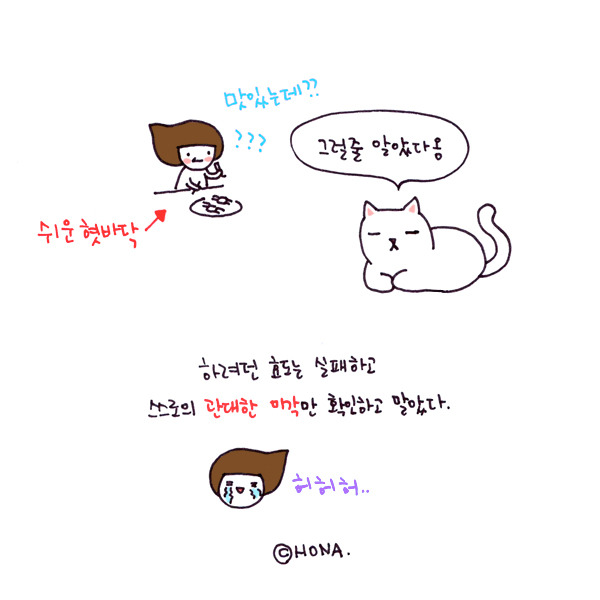 맛있는데??
???
그럴줄 알았다옹
쉬운 혓바닥
하려던 효도는 실패하고
쓰로의 관대한 미각만 확인하고 말았다.
허허허..
©HONA.